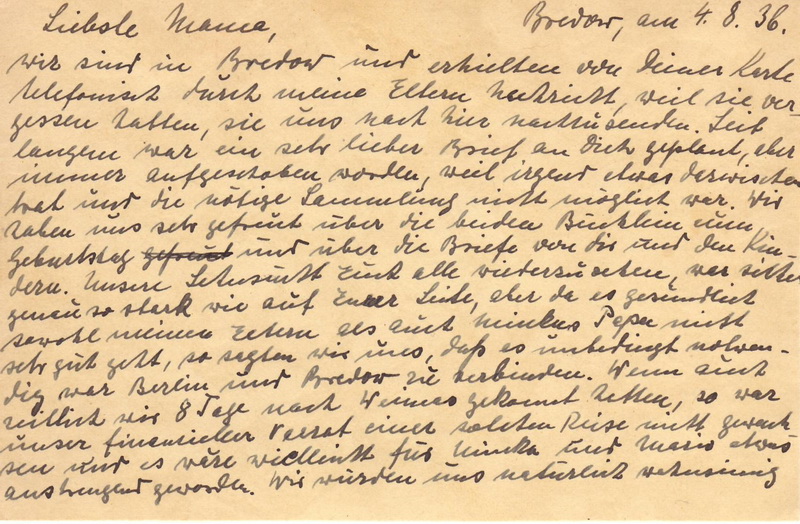 Liebste Mama,
Bredow, am 4. 8. 36.
wir sind in Bredow und erhielten von Deiner Karte
telefonisch durch meine Eltern Nachricht, weil sie ver-
gessen hatten, sie uns nach hier nachzusenden. Seit
langem war ein sehr lieber Brief an Dich geplant, aber
immer aufgeschoben worden, weil irgend etwas dazwischen
trat und die nötige Sammlung nicht möglich war. Wir
haben uns sehr gefreut über die beiden Büchlein zum
Geburtstag gefreut und über die Briefe von dir und den Kin-
dern. Unsere Sehnsucht Euch alle wiederzusehen, war sicher
genau so stark wie auf Eurer Seite, aber da es gesundlich
sowohl meinen Eltern als auch Minkas Papa nicht
sehr gut geht, so sagten wir uns, daß es unbedingt notwen-
dig war Berlin und Bredow zu verbinden. Wenn auch
zeitlich wir 8 Tage nach Weimar gekonnt hätten, so war
unser finanzieller Vorrat einer solchen Reise nicht gewach-
sen und es wäre vielleicht für Minka und Mario etwas
anstrengend geworden. Wir würden uns natürlich wahnsinnig